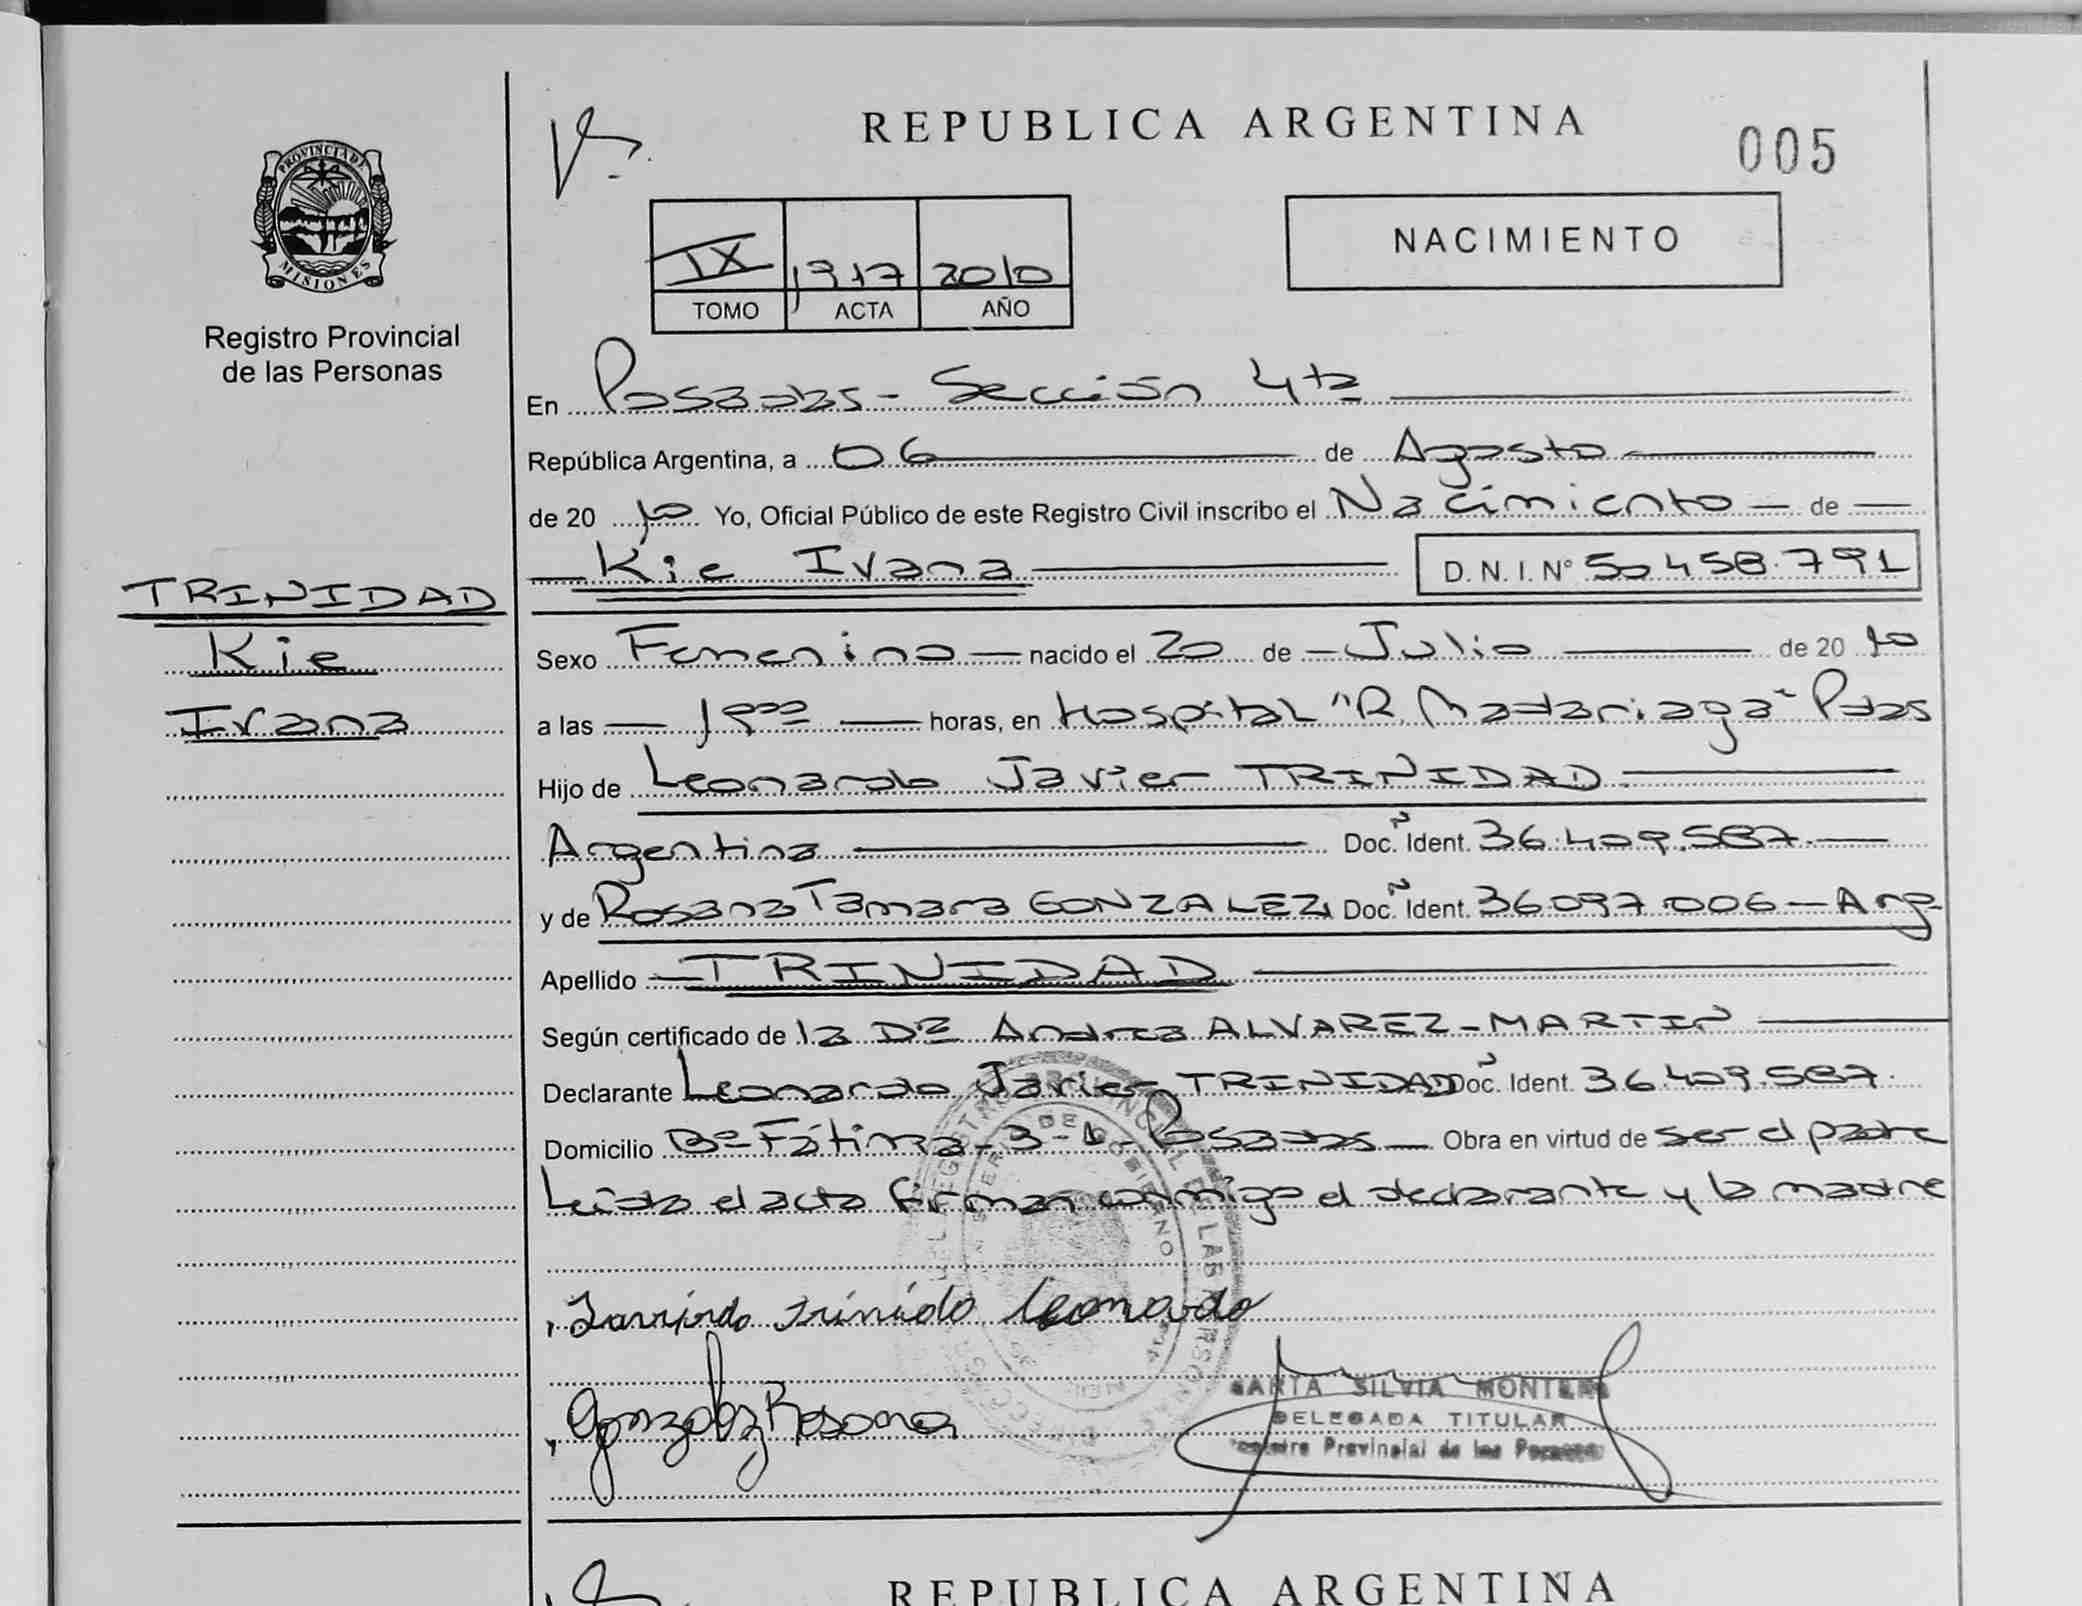 REPUBLICA ARGENTINA
005
PROVINCIA DE
MISIONES
Registro Provincial
de las Personas
IX 1317 2010
TOMO ACTA AÑO
NACIMIENTO
En Posadas - Sección 4ta
República Argentina, a 06 de Agosto
de 20 10 Yo, Oficial Público de este Registro Civil inscribo el Nacimiento de
Kie Ivana D.N.I. Nº 50458.791
TRINIDAD
Kie
Ivana
Sexo Femenino nacido el 20 de Julio de 20 10
a las horas, en Hospital "R. Madariaga" Pdas
Hijo de Leonardo Javier TRINIDAD
Argentina Doc. Ident. 36.409.587
y de Rosana Tamara GONZALEZ Doc. Ident. 36.097.006 - Arg
Apellido TRINIDAD
Según certificado de la Dra Andrea ALVAREZ - MARTIN
Declarante Leonardo Javier TRINIDAD Doc. Ident. 36.409.587.
Domicilio Bº Fátima - 3 - 1 - Posadas Obra en virtud de ser el padre
Leída el acta firman conmigo el declarante y la madre
Leonardo
Gonzalez Rosana
SILVIA
DELEGADA TITULAR
Provincial de las
REPUBLICA ARGENTINA